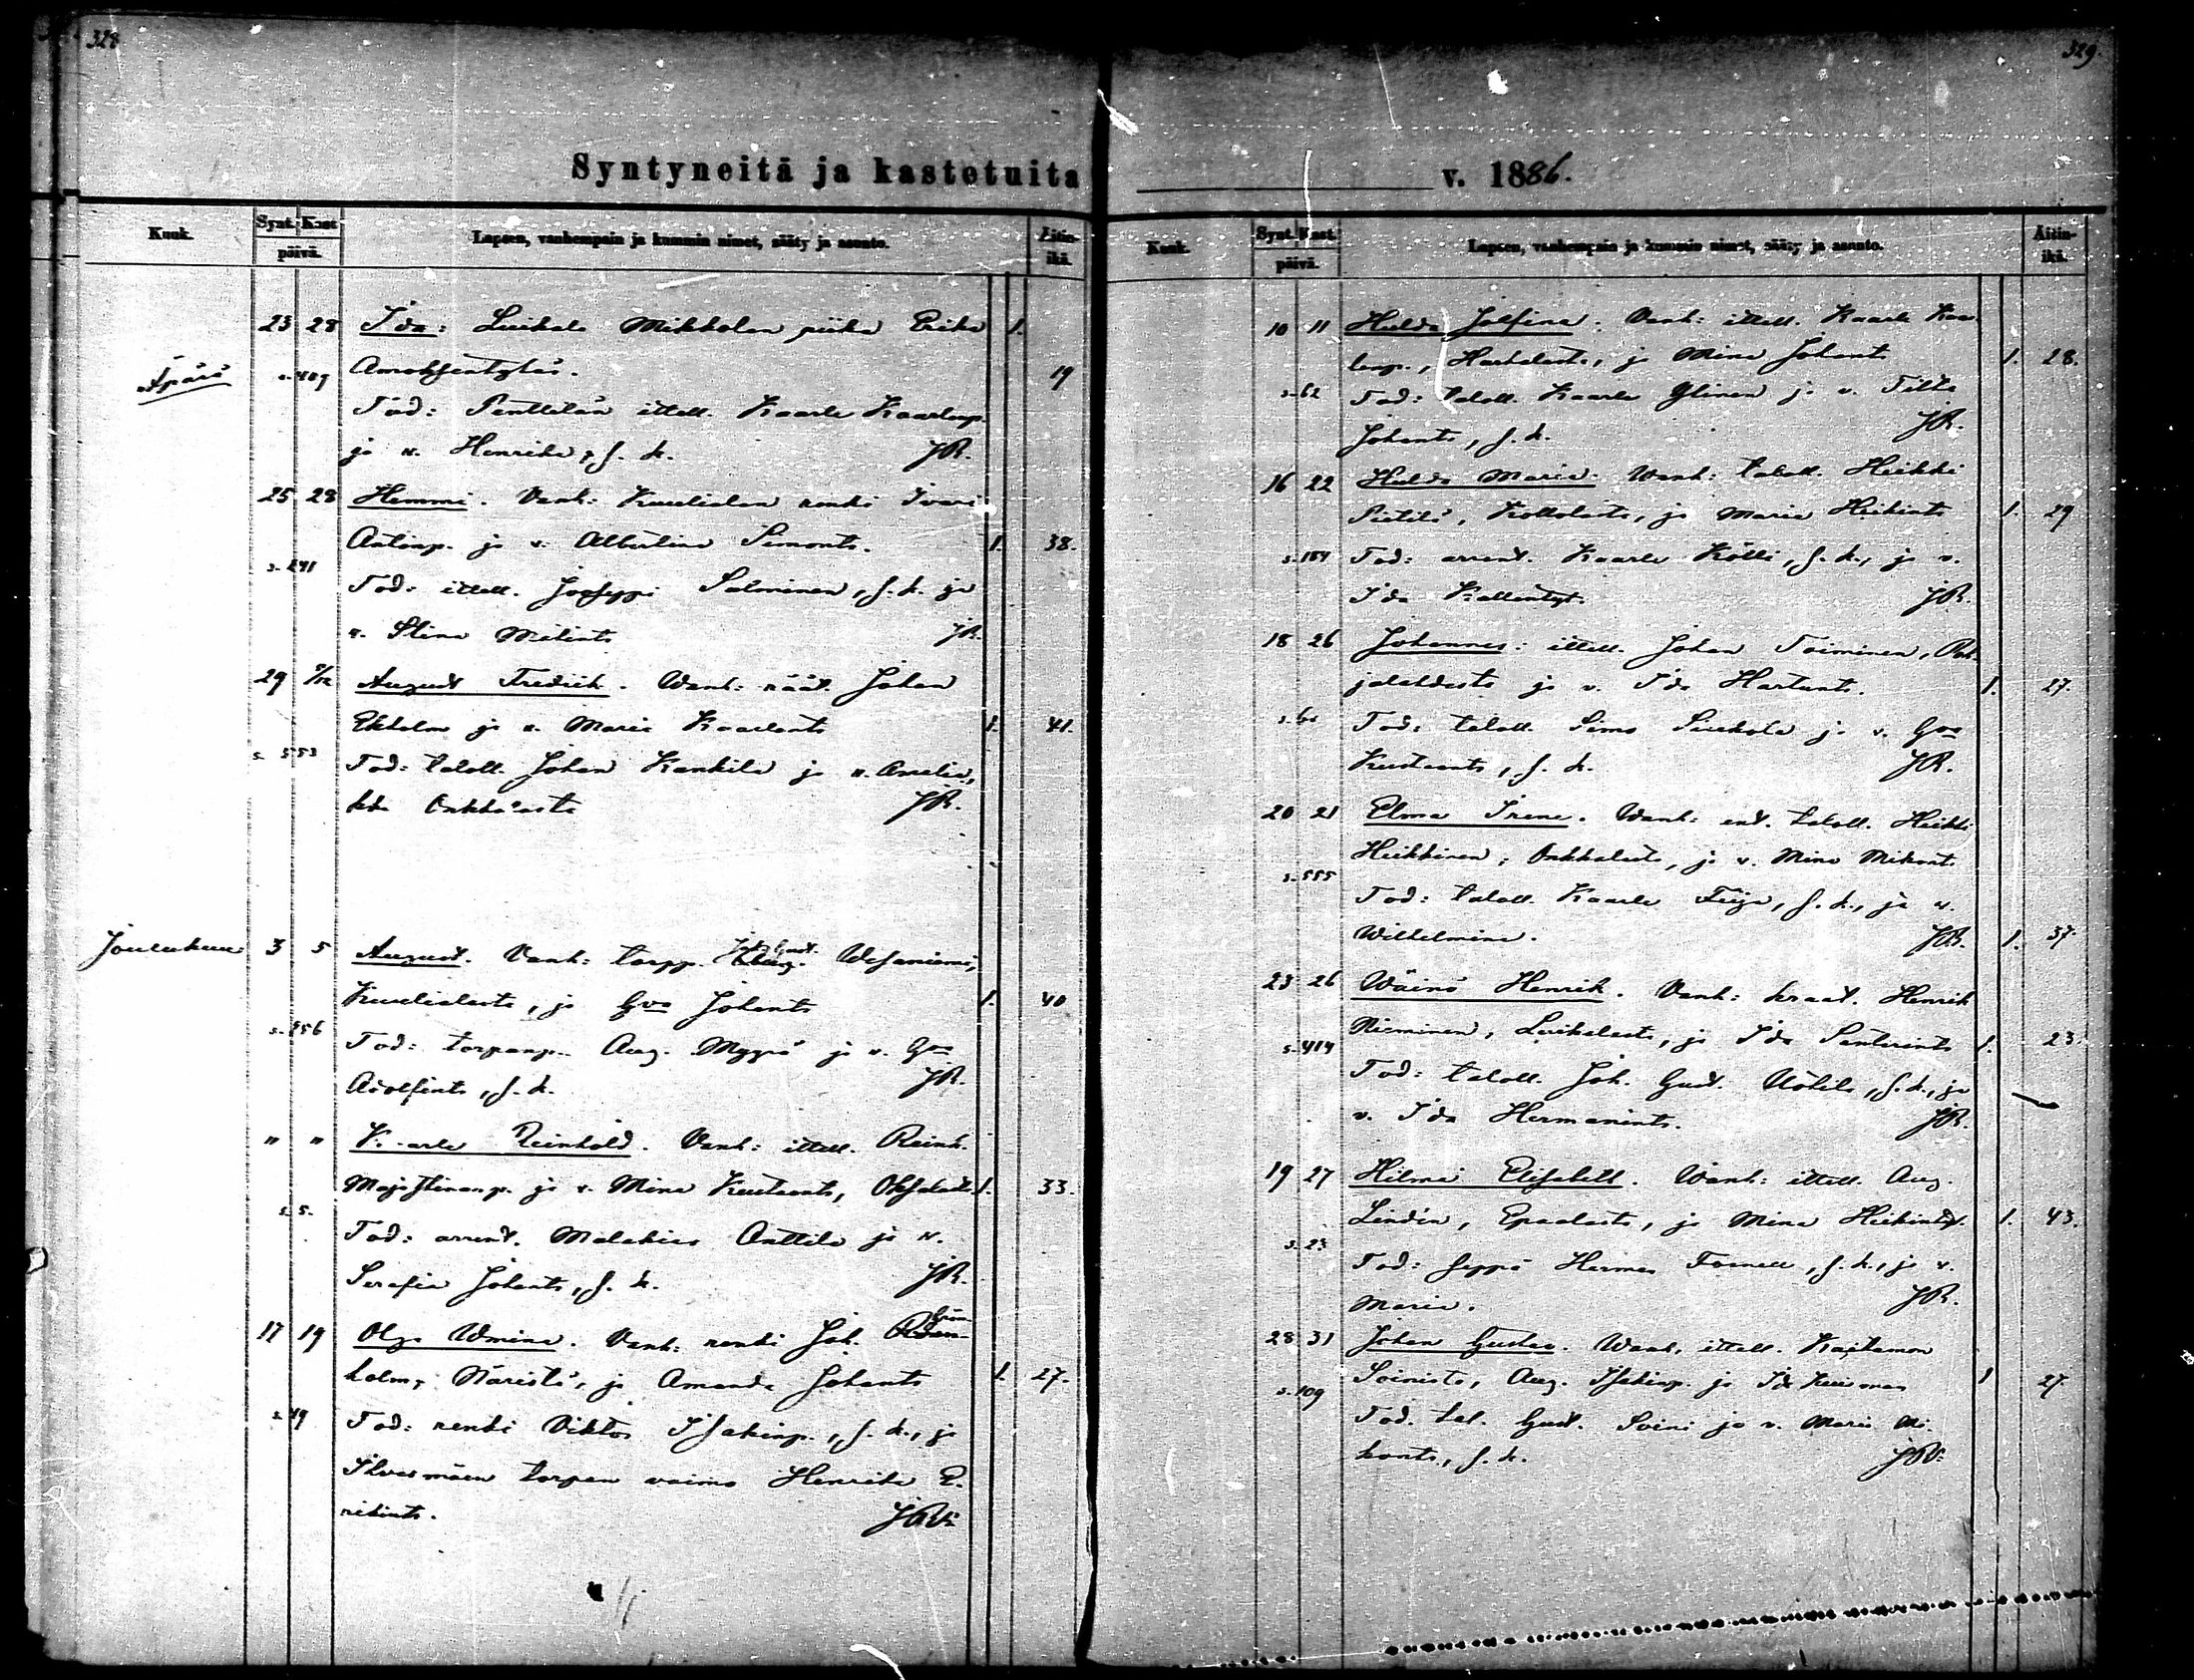 328
329.
Syntyneitä ja kastetuita v. 1886.
Kuuk. Synt. Kast. päivä. Lapsen, vanhempain ja kummin nimet, sääty ja asunto. Äitin-ikä.
23 28 Ida: Luikala Mikkolan piika Erika 1.
Äpärä s. 409 19
Tod: Penttilän ittell. Kaarle Kaarlenp.
ja v. Henrika, s. k. JR.
25 28 Hemmi. Vanh: Kuulialan renki Ivari
Antinp. ja v. Albertina Simonts. 1. 38.
s. 241
Tod: ittell. Joseppi Salminen, s. k. ja
v. Stina Mikints JR.
29 5/12 August Fredrik. Wanh: räät. Johan
Ekholm ja v. Maria Kaarlents 1. 41.
s. 553
Tod: taloll. Johan Kankila ja v. Amalia,
kka Onkkaasta JR.
Joulukuu 3 5 August. Vanh: torpp. Wesaniemi,
Kuulialasta, ja Eva Johants 1. 40
s. 256
Tod: torpanp. Aug. Myyrä ja v. Eva
Adolfints, s. k. JR.
" " Kaarle Reinhold. Vanh: ittell. Reinh.
Majastinanp. ja v. Mina Kustaants, 1. 33.
s. 5.
Tod: arrent. Malakias Anttila ja v.
Serafia Johants, s. k. JR.
17 19 Olga Wmina. Vanh: renki Joh. Grön-
holm, Näristä, ja Amanda Johants 1. 27.
s. 19
Tod: renki Viktor Isakinp., s. k., ja
Ilvesmäen torpan vaimo Henrika E-
rikints. JRV:
Kuuk. Synt. Kast. päivä. Lapsen, vanhempain ja kummin nimet, sääty ja asunto. Äitin-ikä.
10 11 Hulda Josfina. Vanh: ittell. Kaarle Kaar-
lenp., ja Mina Johants 1. 28.
s. 62
Tod: taloll. Kaarle Ylinen ja v. Tilta
Johants, s. k. JR.
16 22 Hulda Maria. Wanh: taloll. Heikki
Pietilä, ja Maria Heikints 1. 29
s. 184
Tod: arrent. Kaarle Kölli, s. k., ja v.
Ida JR.
18 26 Johannes: ittell. Johan Toiminen, Poh-
jalahdesta ja v. Ida 1. 27.
Tod: taloll. Simo Siukola ja v. Eva
Kustaants, s. k. JR.
20 21 Elma Irene. Wanh: ent. taloll. Heikki
Heikkinen, Onkkalasta, ja v. Mina Mikonts
s. 555
Tod: taloll. Kaarle Feija, s. k., ja v.
Wilhelmina. JR. 1. 37.
23 26 Wäinö Henrik. Vanh: kraat. Henrik
Nieminen, Luikalasta, ja Ida Santerints 1. 23.
s. 414
Tod: taloll. Joh. Gust. Uötila, s. k., ja
v. Ida Hermanints. JR.
19 27 Hilma Elisabett. Wanh: ittell. Aug.
Lindén, Epaalasta, ja Mina Heikintyt. 1. 43.
s. 23
Tod: seppä Herman Fornell, s. k., ja v.
Maria. JR.
28 31 Johan Gustav. Wanh: ittell.
Soinista, Aug. Isakinp. ja Ida 1 27.
s. 109
Tod. tal. Gust. Soini ja v. Maria Mi-
konts, s. k. JRV: